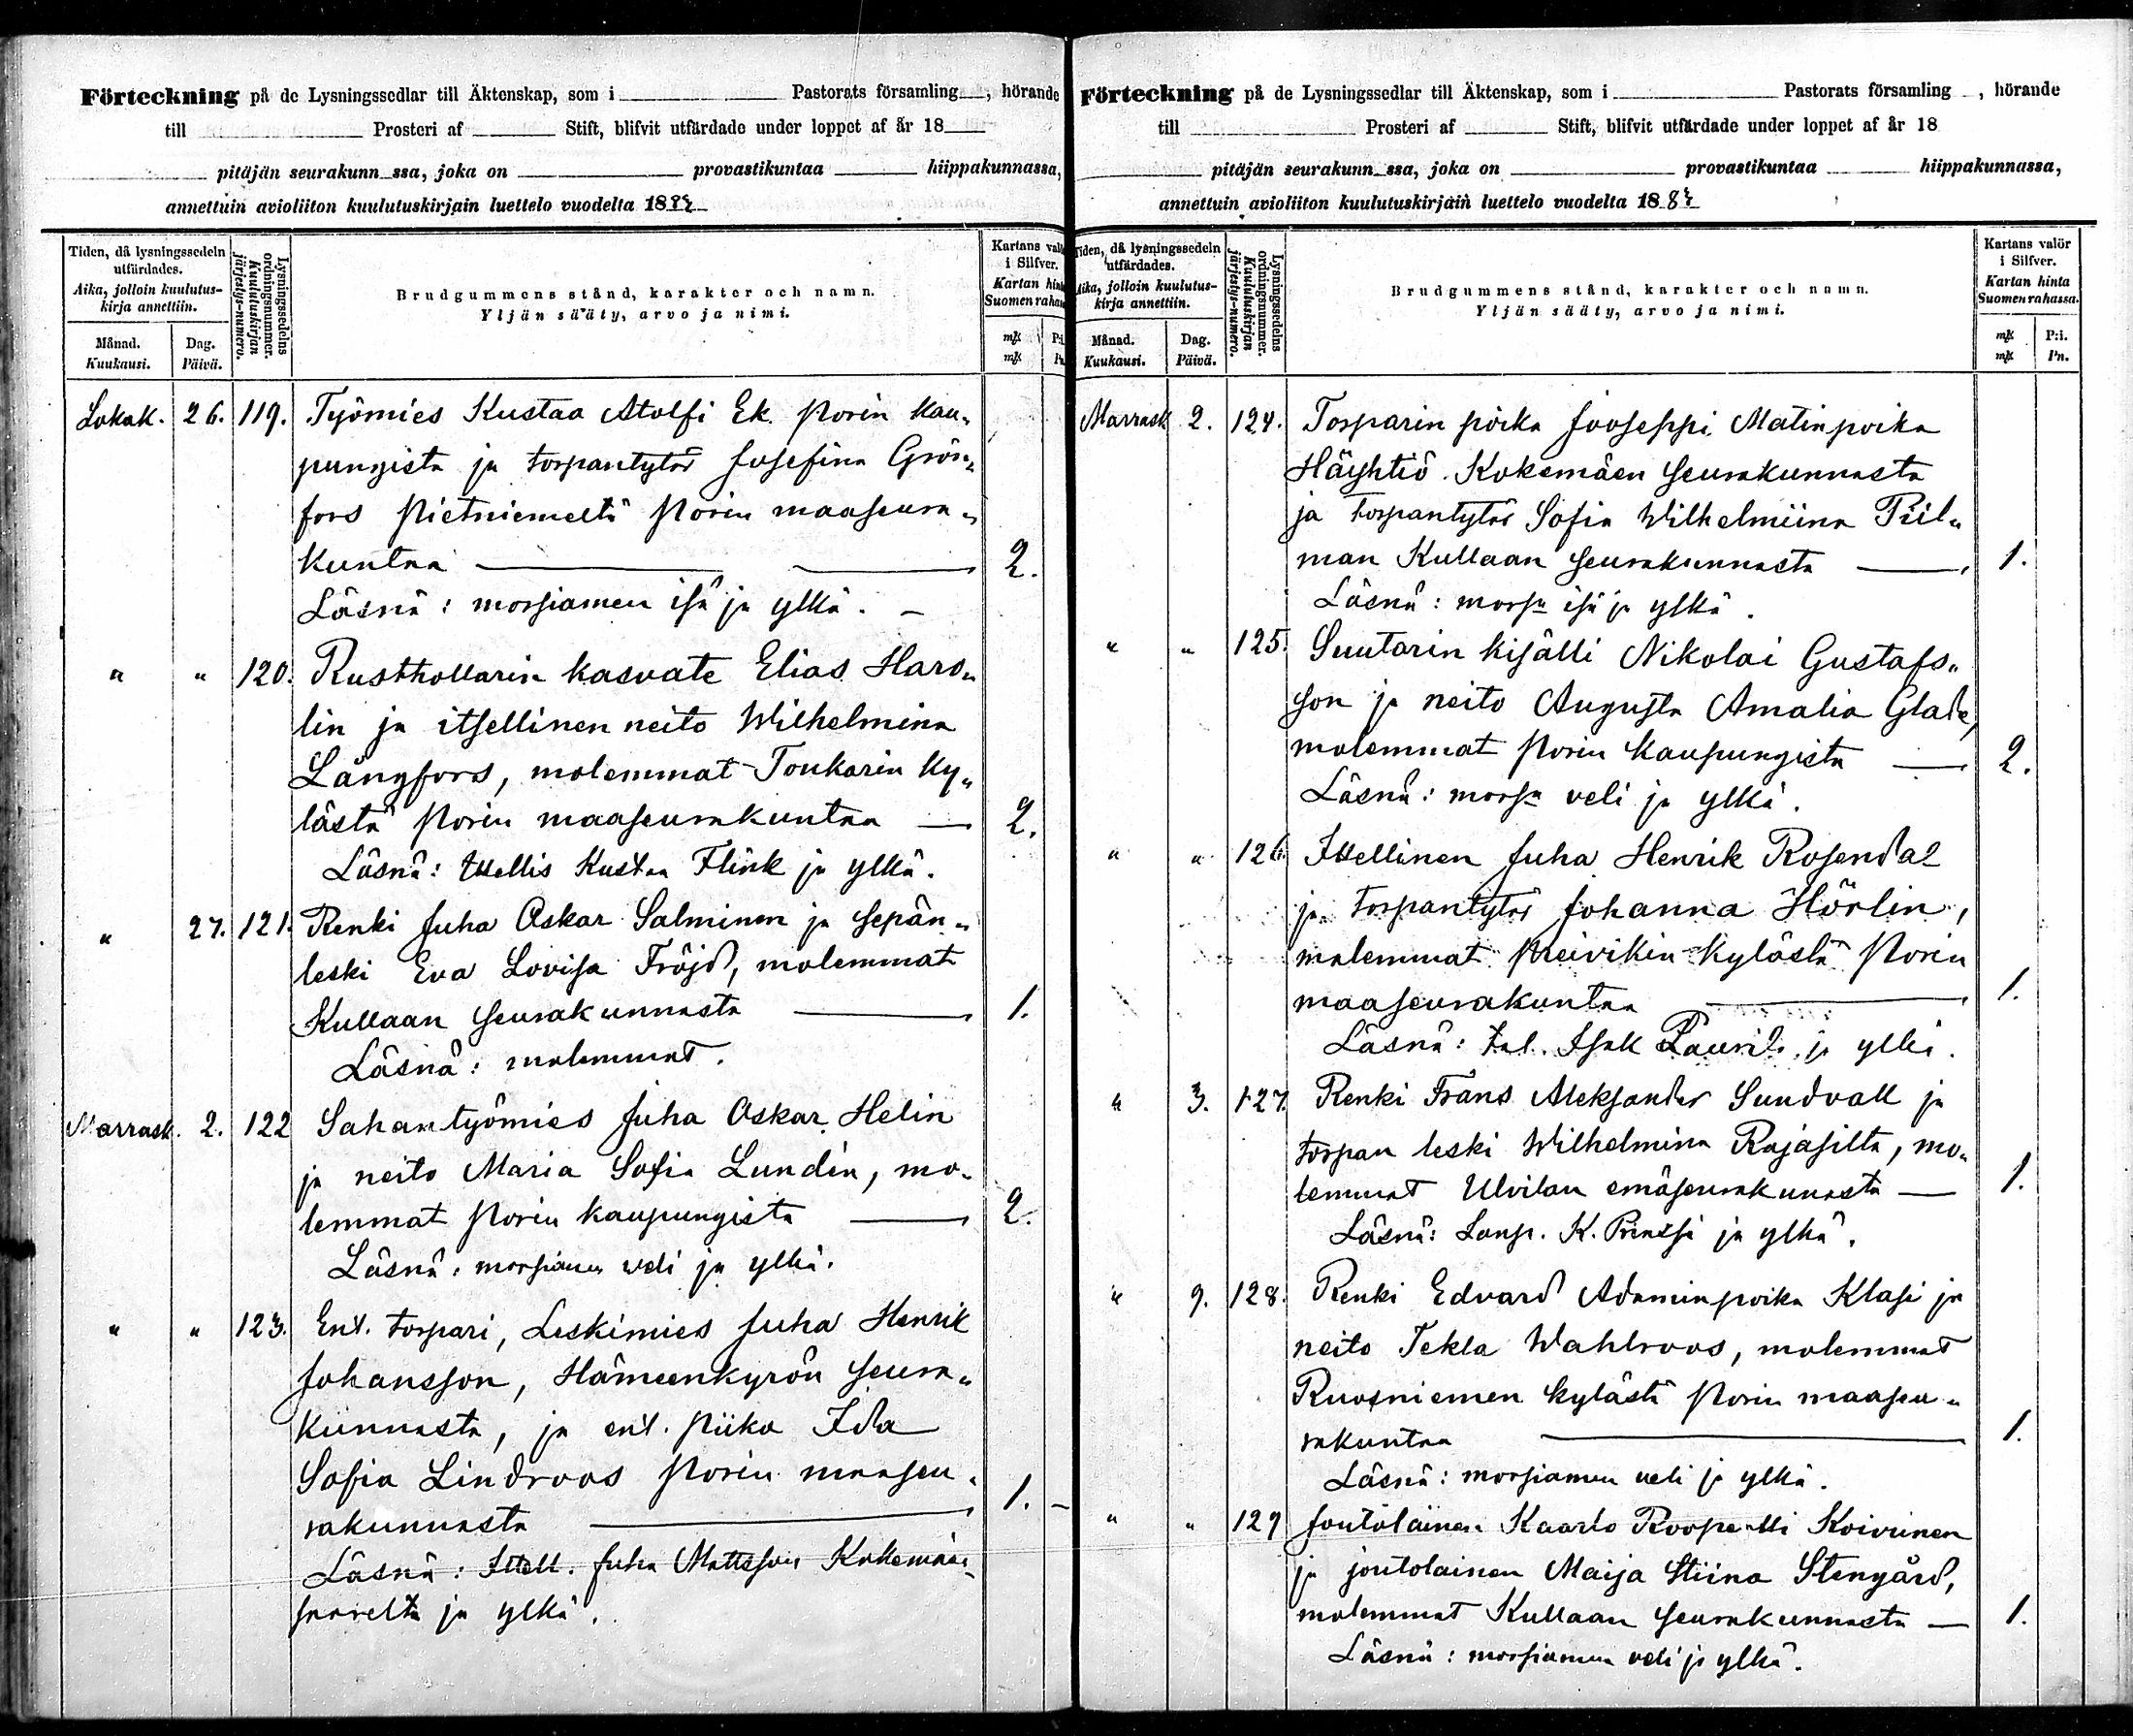 Förteckning på de Lysningssedlar till Äktenskap, som i Pastorats församling, hörande
till Prosteri af Stift, blifvit utfärdade under loppet af år 18
pitäjän seurakunn ssa, joka on provastikuntaa hiippakunnassa,
annettuin avioliiton kuulutuskirjain luettelo vuodelta 18
Tiden, då lysningssedeln utfärdades.
Aika, jolloin kuulutus-kirja annettiin.
Månad. Kuukausi.
Dag. Päivä.
Lysningssedelns ordningsnummer.
Kuulutuskirjan järjestys-numero.
Brudgummens stånd, karakter och namn.
Yljän sääty, arvo ja nimi.
Kartans valör i Silfver.
Kartan hinta Suomen rahassa.
Lokak. 26. 119. Työmies Kustaa Atolfi Ek Porin kau„
pungista ja torpantytär Josefina Grön„
fors Pietniemeltä Porin maaseura„
kuntaa 2.
Läsnä: morsiamen isä ja ylkä. –
" " 120. Rusthollarin kasvate Elias Hard„
lin ja itsellinen neito Wilhelmina
Långfors, molemmat Toukarin ky„
lästä Porin maaseurakuntaa 2.
Läsnä: Itsellis Kustaa Flink ja ylkä.
" 27. 121. Renki Juha Oskar Salminen ja sepän„
leski Eva Lovisa Fröjd, molemmat
Kullaan seurakunnasta 1.
Läsnä: molemmat.
Marrask. 2. 122 Sahantyömies Juha Oskar Helin
ja neito Maria Sofia Lundin, mo„
lemmat Porin kaupungista 2.
Läsnä: morsiamen veli ja ylkä.
" " 123. Ent. torpari, Leskimies Juha Henrik
Johansson, Hämeenkyrön seura„
kunnasta, ja ent. piika Ida
Sofia Lindroos Porin maaseu„
rakunnasta 1. –
Läsnä: Itsell. Juha Mattsson Kokemäen
saarelta ja ylkä.
Förteckning på de Lysningssedlar till Äktenskap, som i Pastorats församling, hörande
till Prosteri af Stift, blifvit utfärdade under loppet af år 18
pitäjän seurakunn ssa, joka on provastikuntaa hiippakunnassa,
annettuin avioliiton kuulutuskirjain luettelo vuodelta 18
Tiden, då lysningssedeln utfärdades.
Aika, jolloin kuulutus-kirja annettiin.
Månad. Kuukausi.
Dag. Päivä.
Lysningssedelns ordningsnummer.
Kuulutuskirjan järjestys-numero.
Brudgummens stånd, karakter och namn.
Yljän sääty, arvo ja nimi.
Kartans valör i Silfver.
Kartan hinta Suomen rahassa.
mk P:i.
mk Pn.
Marrask 2. 124. Torparin poika Jooseppi Matinpoika
Häyhtiö Kokemäen seurakunnasta
ja torpantytär Sofia Wilhelmiina Piil„
man Kullaan seurakunnasta 1.
Läsnä: mors:n isä ja ylkä.
" " 125. Suutarin kisälli Nikolai Gustafs„
son ja neito Augusta Amalia Glade,
molemmat Porin kaupungista 2.
Läsnä: mors:n veli ja ylkä.
" " 126. Itsellinen Juha Henrik Rosendal
ja torpantytär Johanna Hörlin,
molemmat Preivikin kylästä Porin
maaseurakuntaa 1.
Läsnä: tal. Isak Laurila ja ylkä.
" 3. 127. Renki Frans Aleksander Sundvall ja
torpan leski Wilhelmina Rajasilta, mo„
lemmat Ulvilan emäseurakunnasta 1.
Läsnä: K. Prinssi ja ylkä.
" 9. 128. Renki Edvard Adaminpoika Klasi ja
neito Tekla Wahlroos, molemmat
Ruosniemen kylästä Porin maaseu„
rakuntaa 1.
Läsnä: morsiamen veli ja ylkä.
" " 129 Joutolainen Kaarlo Roopertti Koivunen
ja joutolainen Maija Stiina Stengård,
molemmat Kullaan seurakunnasta 1.
Läsnä: morsiamen veli ja ylkä.